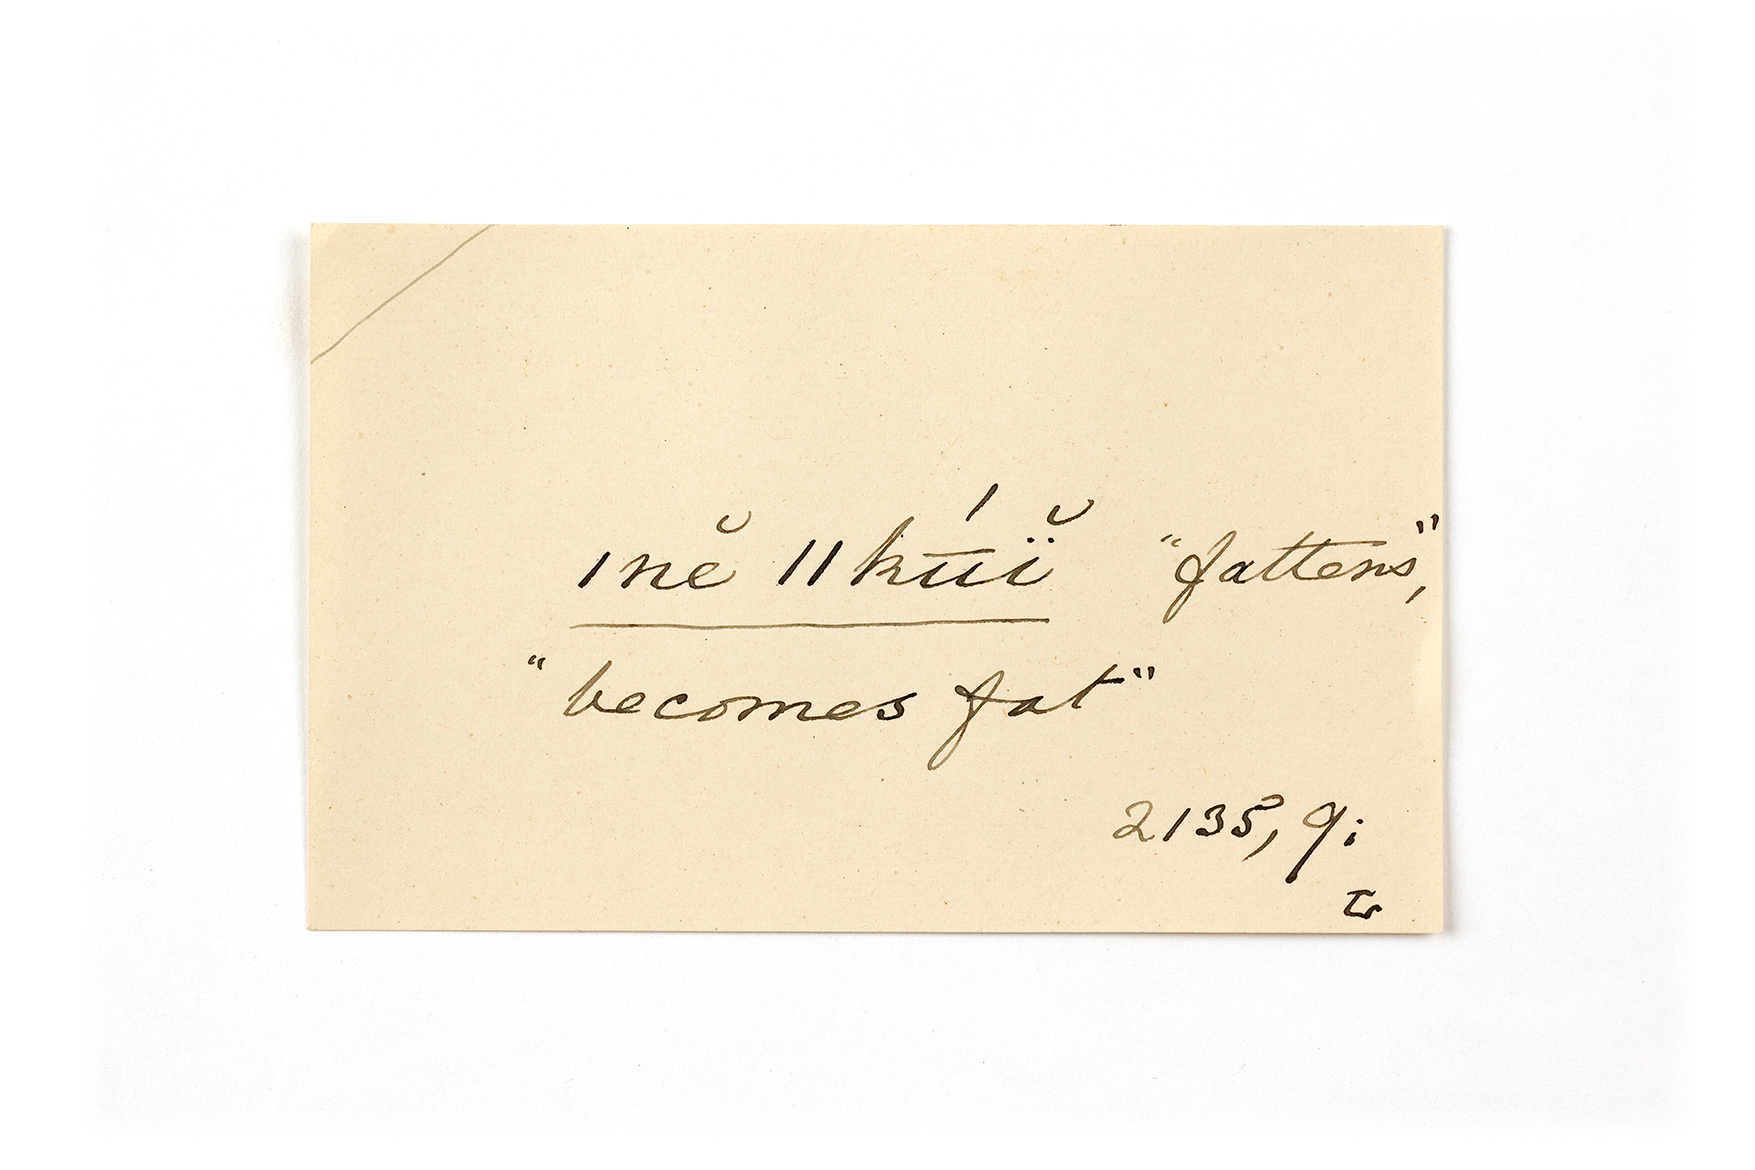 ǀnĕ ǁkū́ï̆ "fattens",
"becomes fat"
2135, 9;